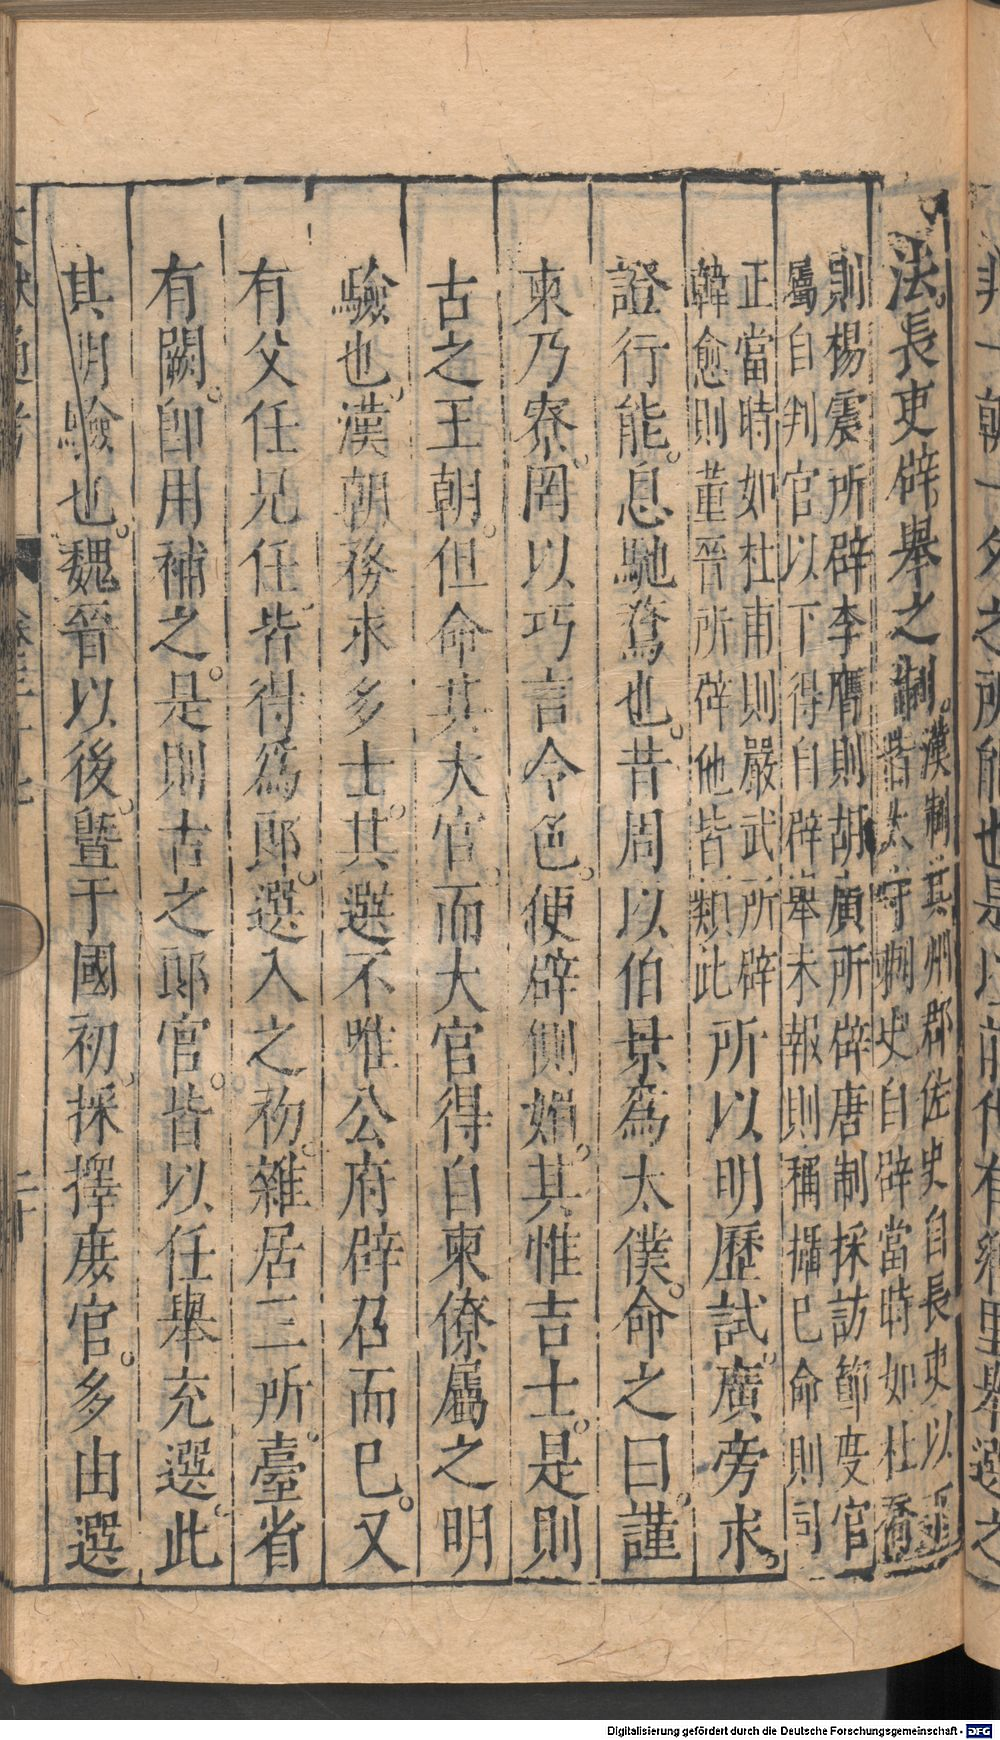 法長吏辟舉之制漢制其州郡佐史自長史以下
皆太守刺史自辟當時如杜喬
則楊震所辟李膺則胡廣所辟唐制採訪節度官
屬自判官以下得自辟舉未報則稱攝已命則同
正當時如杜甫則嚴武所辟
韓愈則董晉所辟他皆類此所以明歷試廣旁求
證行能息馳騖也昔周以伯景爲太僕命之曰謹
柬乃寮罔以巧言令色便辟側媚其惟吉士是則
古之王朝但命其大官而大官得自柬僚屬之明
驗也漢朝務求多士其選不唯公府辟召而已又
有父任兄任皆得爲郎選入之初雜居三所臺省
有闕卽用補之是則古之郎官皆以任舉充選此
其明驗也魏晉以後曁于國初採擇庶官多由選
Digitalisierung gefördert durch die Deutsche Forschungsgemeinschaft - DFG